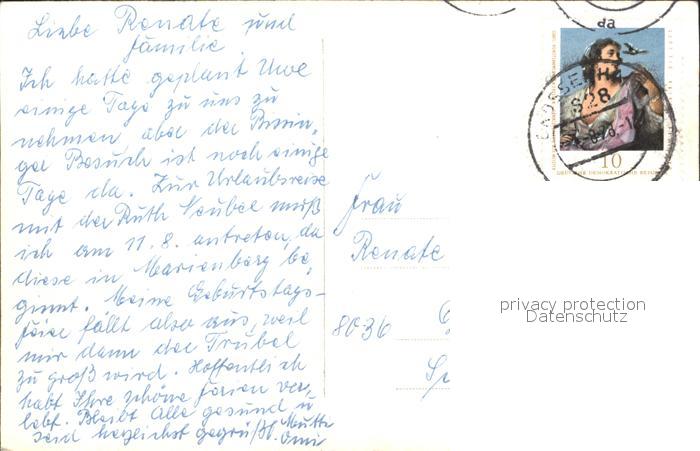 Liebe Renate und
Familie,
Ich hatte geplant Uwe
einige Tage zu uns zu
nehmen aber der
ger Besuch ist noch einige
Tage da. Zur Urlaubsreise
mit der Ruth Neuber muß
ich am 11.8. antreten, da
diese in Marienberg be
ginnt. Meine Geburtstags-
feier fällt also aus, weil
mir dann der Trubel
zu groß wird. Hoffentlich
habt Ihr schöne Ferien ver
lebt. Bleibt alle gesund u
seid herzlichst gegrüßt. Mutti
Omi
Frau
Renate
8036
da
GROSSENH
828
10
DEUTSCHE DEMOKRATISCHE REPUBLIK
privacy protection
Datenschutz